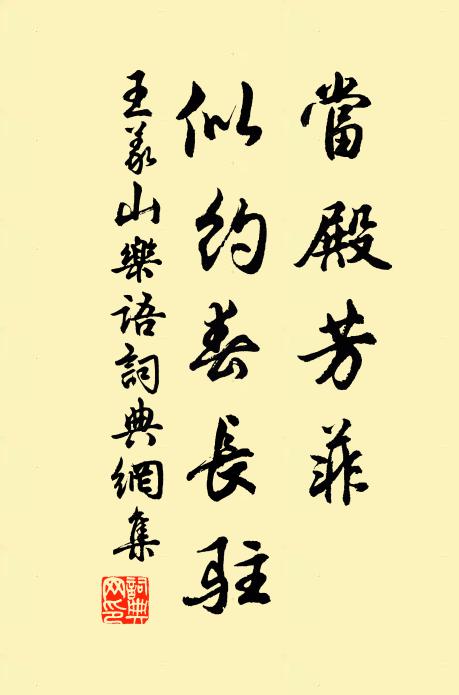 當殿芳菲
似約春長駐
王義山樂語詞典網集
詞典網印